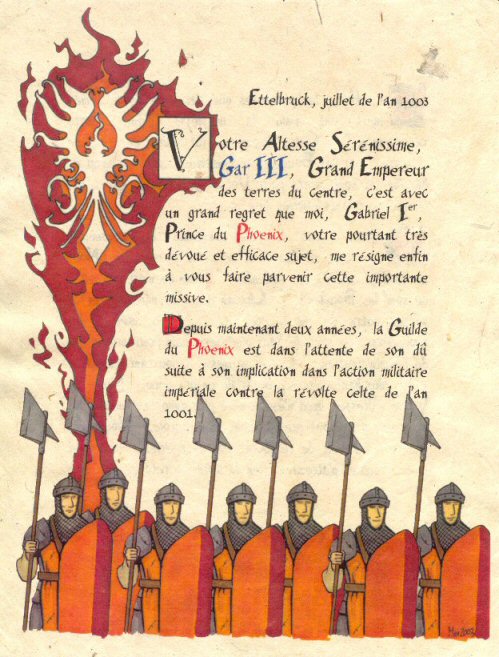 Ettelbruck, juillet de l'an 1003
Votre Altesse Sérénissime,
Gar III, Grand Empereur
des terres du centre, c'est avec
un grand regret que moi, Gabriel Ier,
Prince du Phoenix, votre pourtant très
dévoué et efficace sujet, me résigne enfin
à vous faire parvenir cette importante
missive.
Depuis maintenant deux années, la Guilde
du Phoenix est dans l'attente de son dû
suite à son implication dans l'action militaire
impériale contre la révolte celte de l'an
1001.